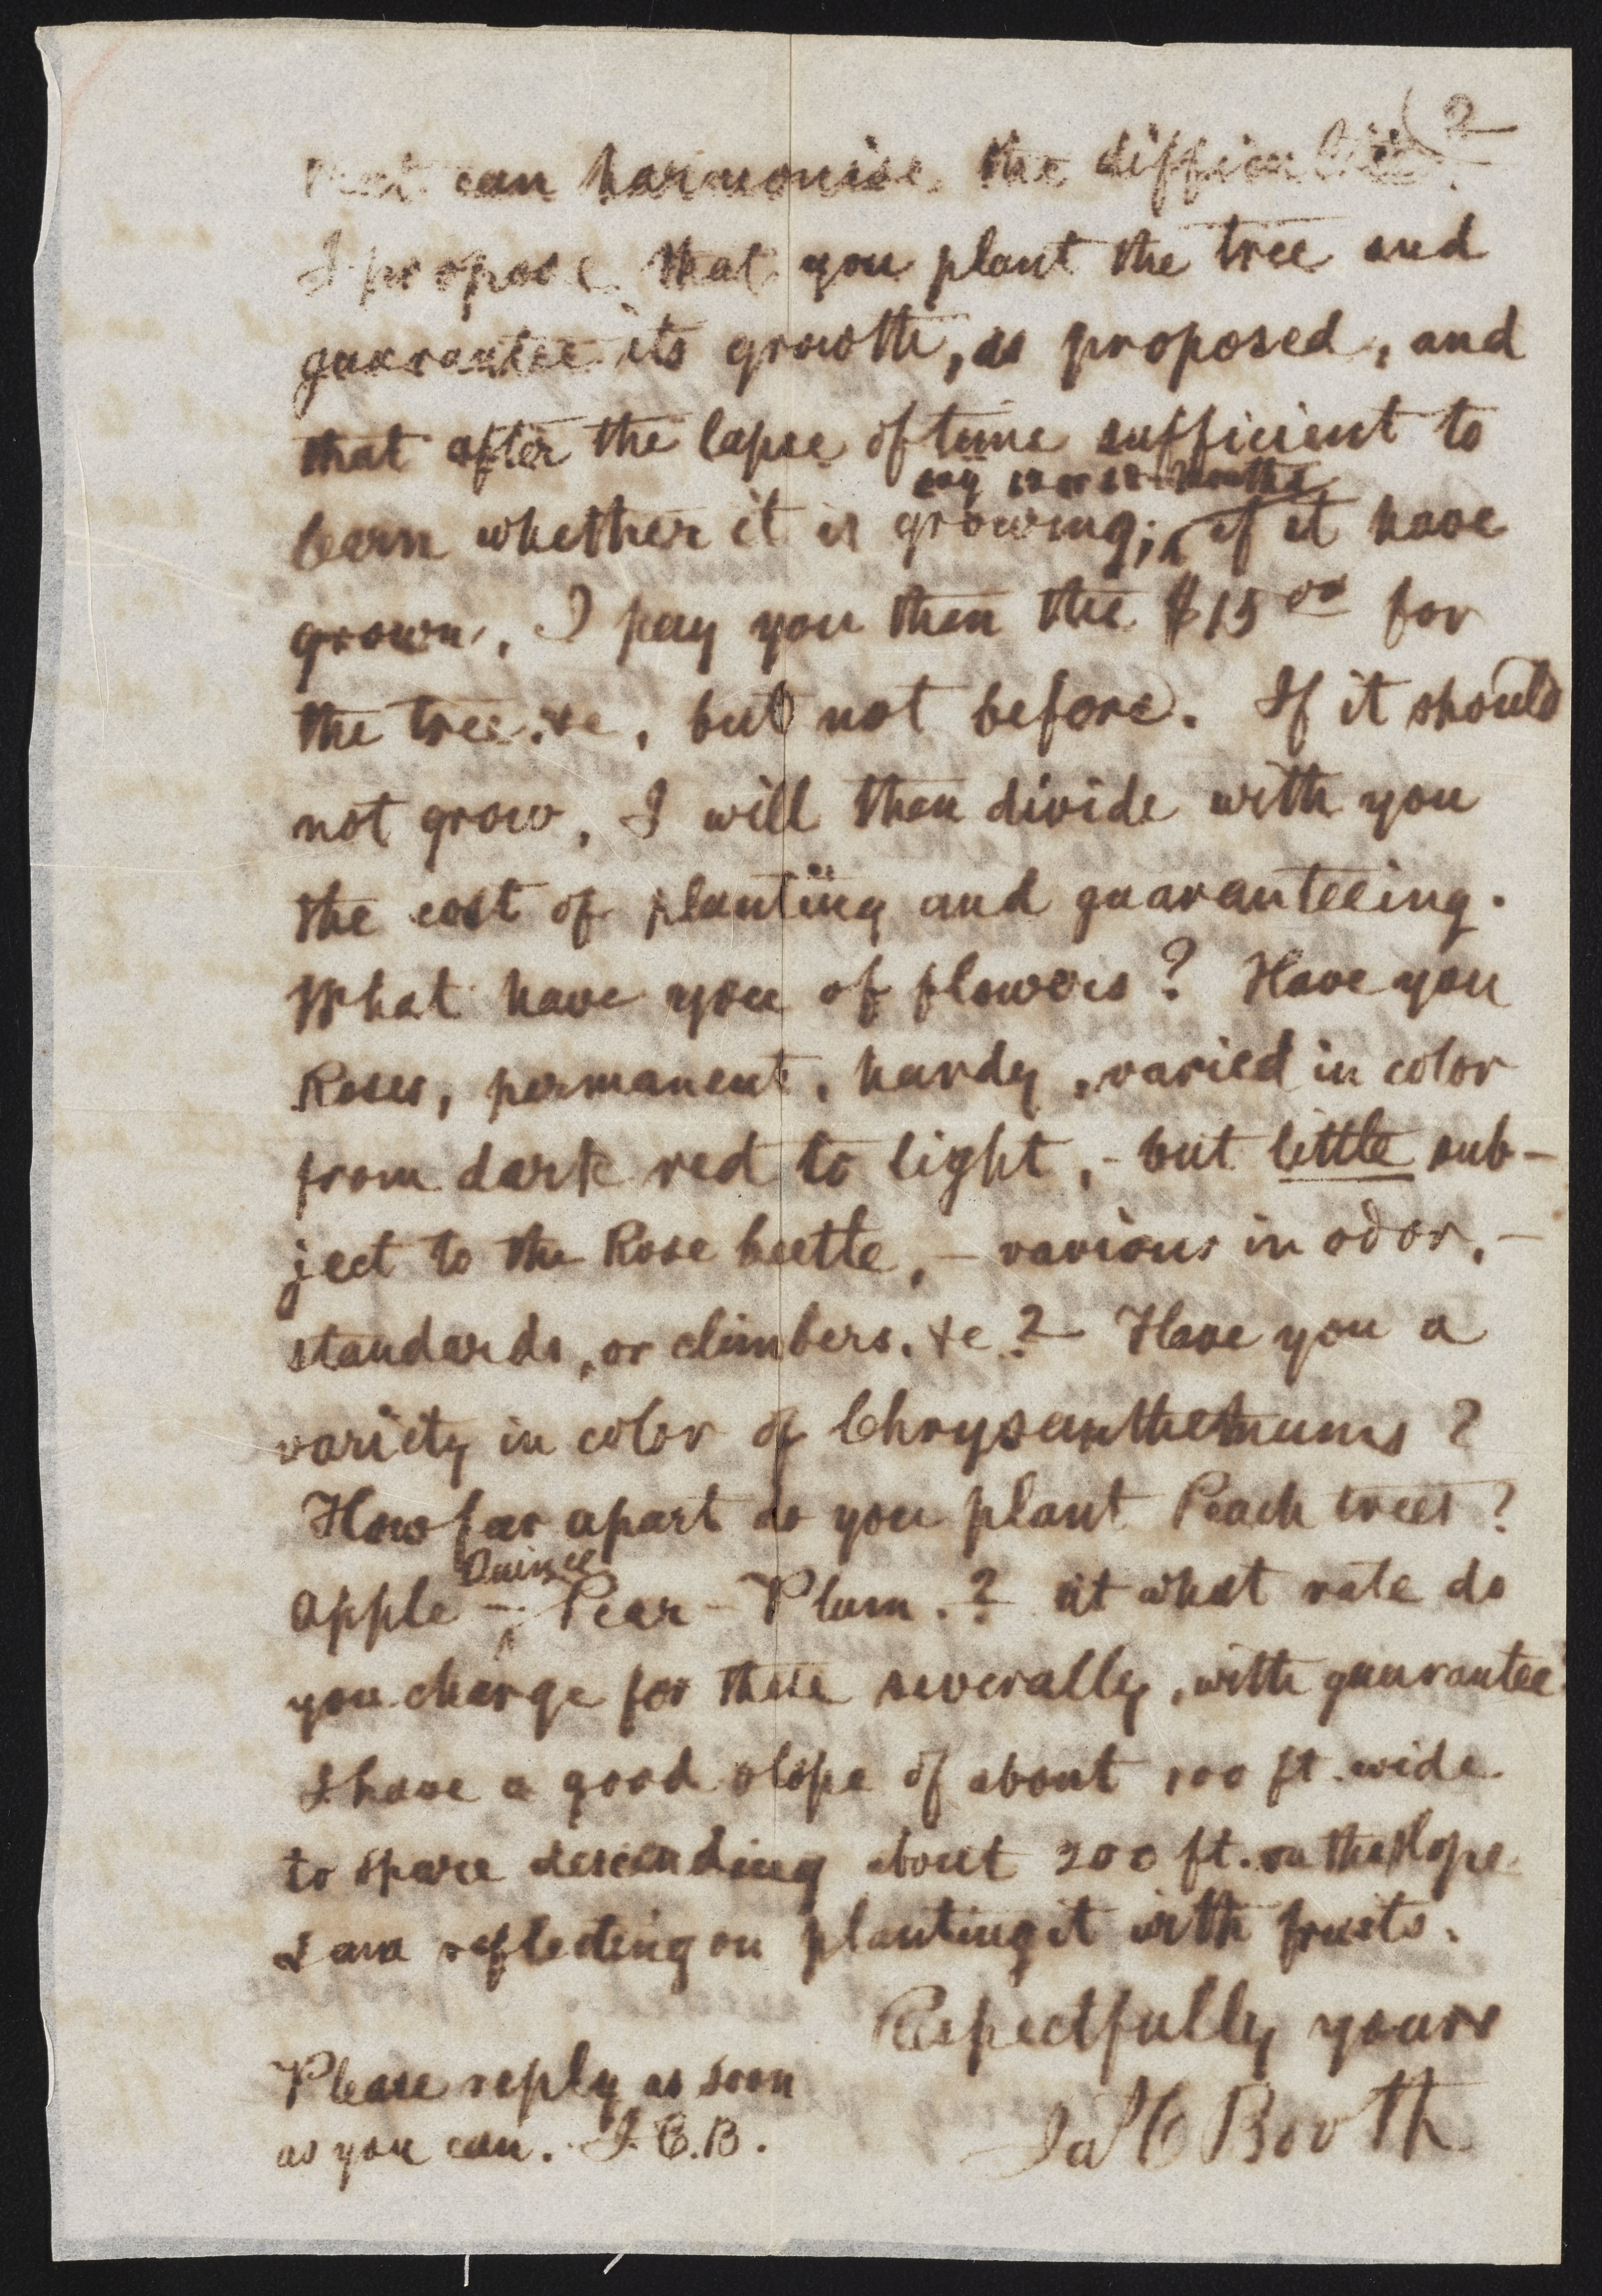 (2
that can harmonise the difficulties.
I propose that you plant the tree and
guarantee its growth, as proposed, and
that after the lapse of time sufficient to
say 12 or 18 months,
learn whether it is growing; ^ if it have
grown, I pay you then the $15 00 for
the tree &c, but not before. If it should
not grow, I will then divide with you
the cost of planting and guaranteeing.
What have you of flowers? Have you
Roses, permanent, hardy, varied in color
from dark red to light, - but little sub-
ject to the Rose beetle, - various in odor, -
standards, or climbers, &c? Have you a
variety in color of Chrysanthemums?
How far apart do you plant Peach trees?
Quince
Apple - ^ Pear - Plum.? At what rate do
you charge for these severally, with guarantee
I have a good slope of about 100 ft. wide
to spare descending about 200 ft. on the slope
I am reflecting on planting it with fruits.
Respectfully yours
Please reply as soon
as you can. J.C.B.
Jas C Booth